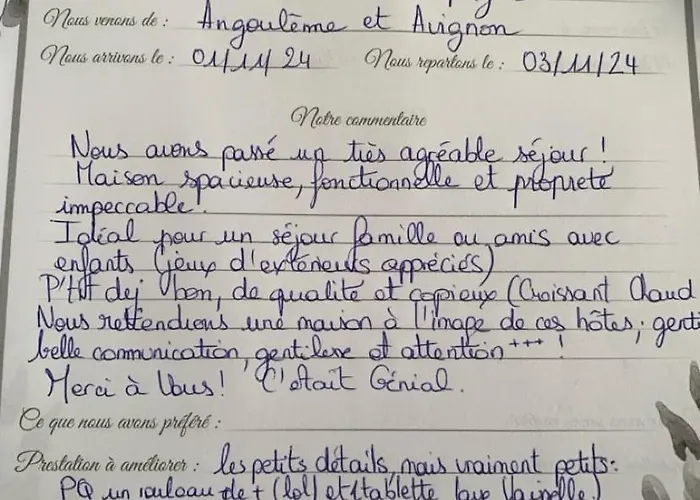 Nous venons de : Angoulême et Avignon
Nous arrivons le : 01/11/24 Nous repartons le : 03/11/24
Notre commentaire
Nous avons passé un très agréable séjour !
Maison spacieuse, fonctionnelle et propreté
impeccable !
Idéal pour un séjour famille ou amis avec
enfants (jeux d'extérieurs appréciés)
P'tit dej bon, de qualité et copieux (Croissant Chaud
Nous rettendions une maison à l'image de ces hôtes ; genti
belle communication, gentilesse et attention +++ !
Merci à Vous ! C'était Génial.
Ce que nous avons préféré :
Prestation à améliorer : les petits détails, mais vraiment petits :
PQ un rouleau de + (lol) et 1 tablette lave Vaisselle)